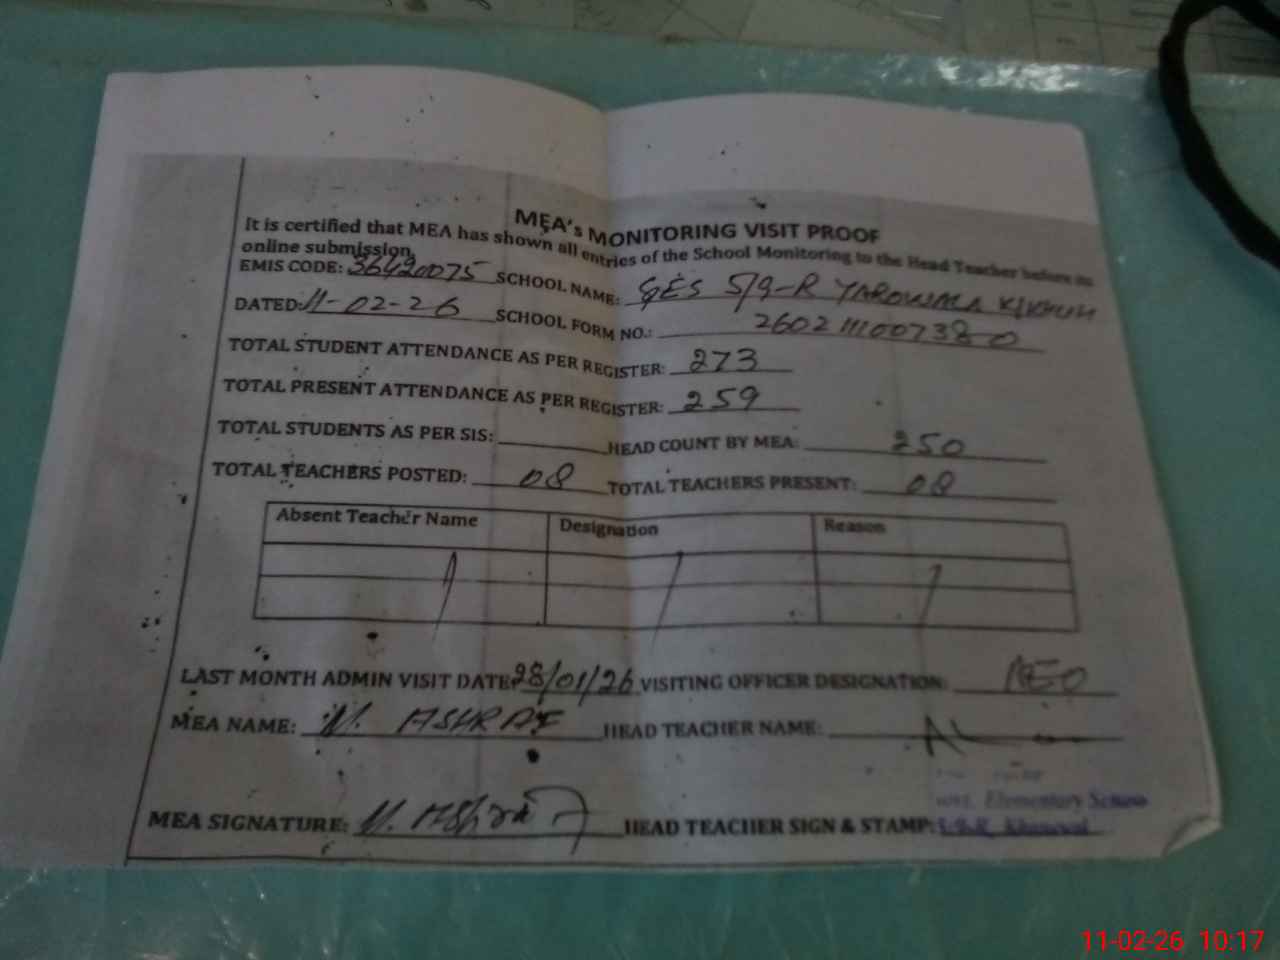 MEA's MONITORING VISIT PROOF
It is certified that MEA has shown all entries of the School Monitoring to the Head Teacher before its
online submission.
EMIS CODE: 36420075 SCHOOL NAME: GES 5/9-R YAROWALA
DATED: 11-02-26 SCHOOL FORM NO.: 260211007380
TOTAL STUDENT ATTENDANCE AS PER REGISTER: 273
TOTAL PRESENT ATTENDANCE AS PER REGISTER: 259
TOTAL STUDENTS AS PER SIS: HEAD COUNT BY MEA: 250
TOTAL TEACHERS POSTED: 08 TOTAL TEACHERS PRESENT: 08
Absent Teacher Name Designation Reason
LAST MONTH ADMIN VISIT DATE: 28/01/26 VISITING OFFICER DESIGNATION: AEO
MEA NAME: M. ASHRAF HEAD TEACHER NAME:
MEA SIGNATURE: M. Ashraf HEAD TEACHER SIGN & STAMP:
Govt. Elementary School
Khanewal
11-02-26 10:17